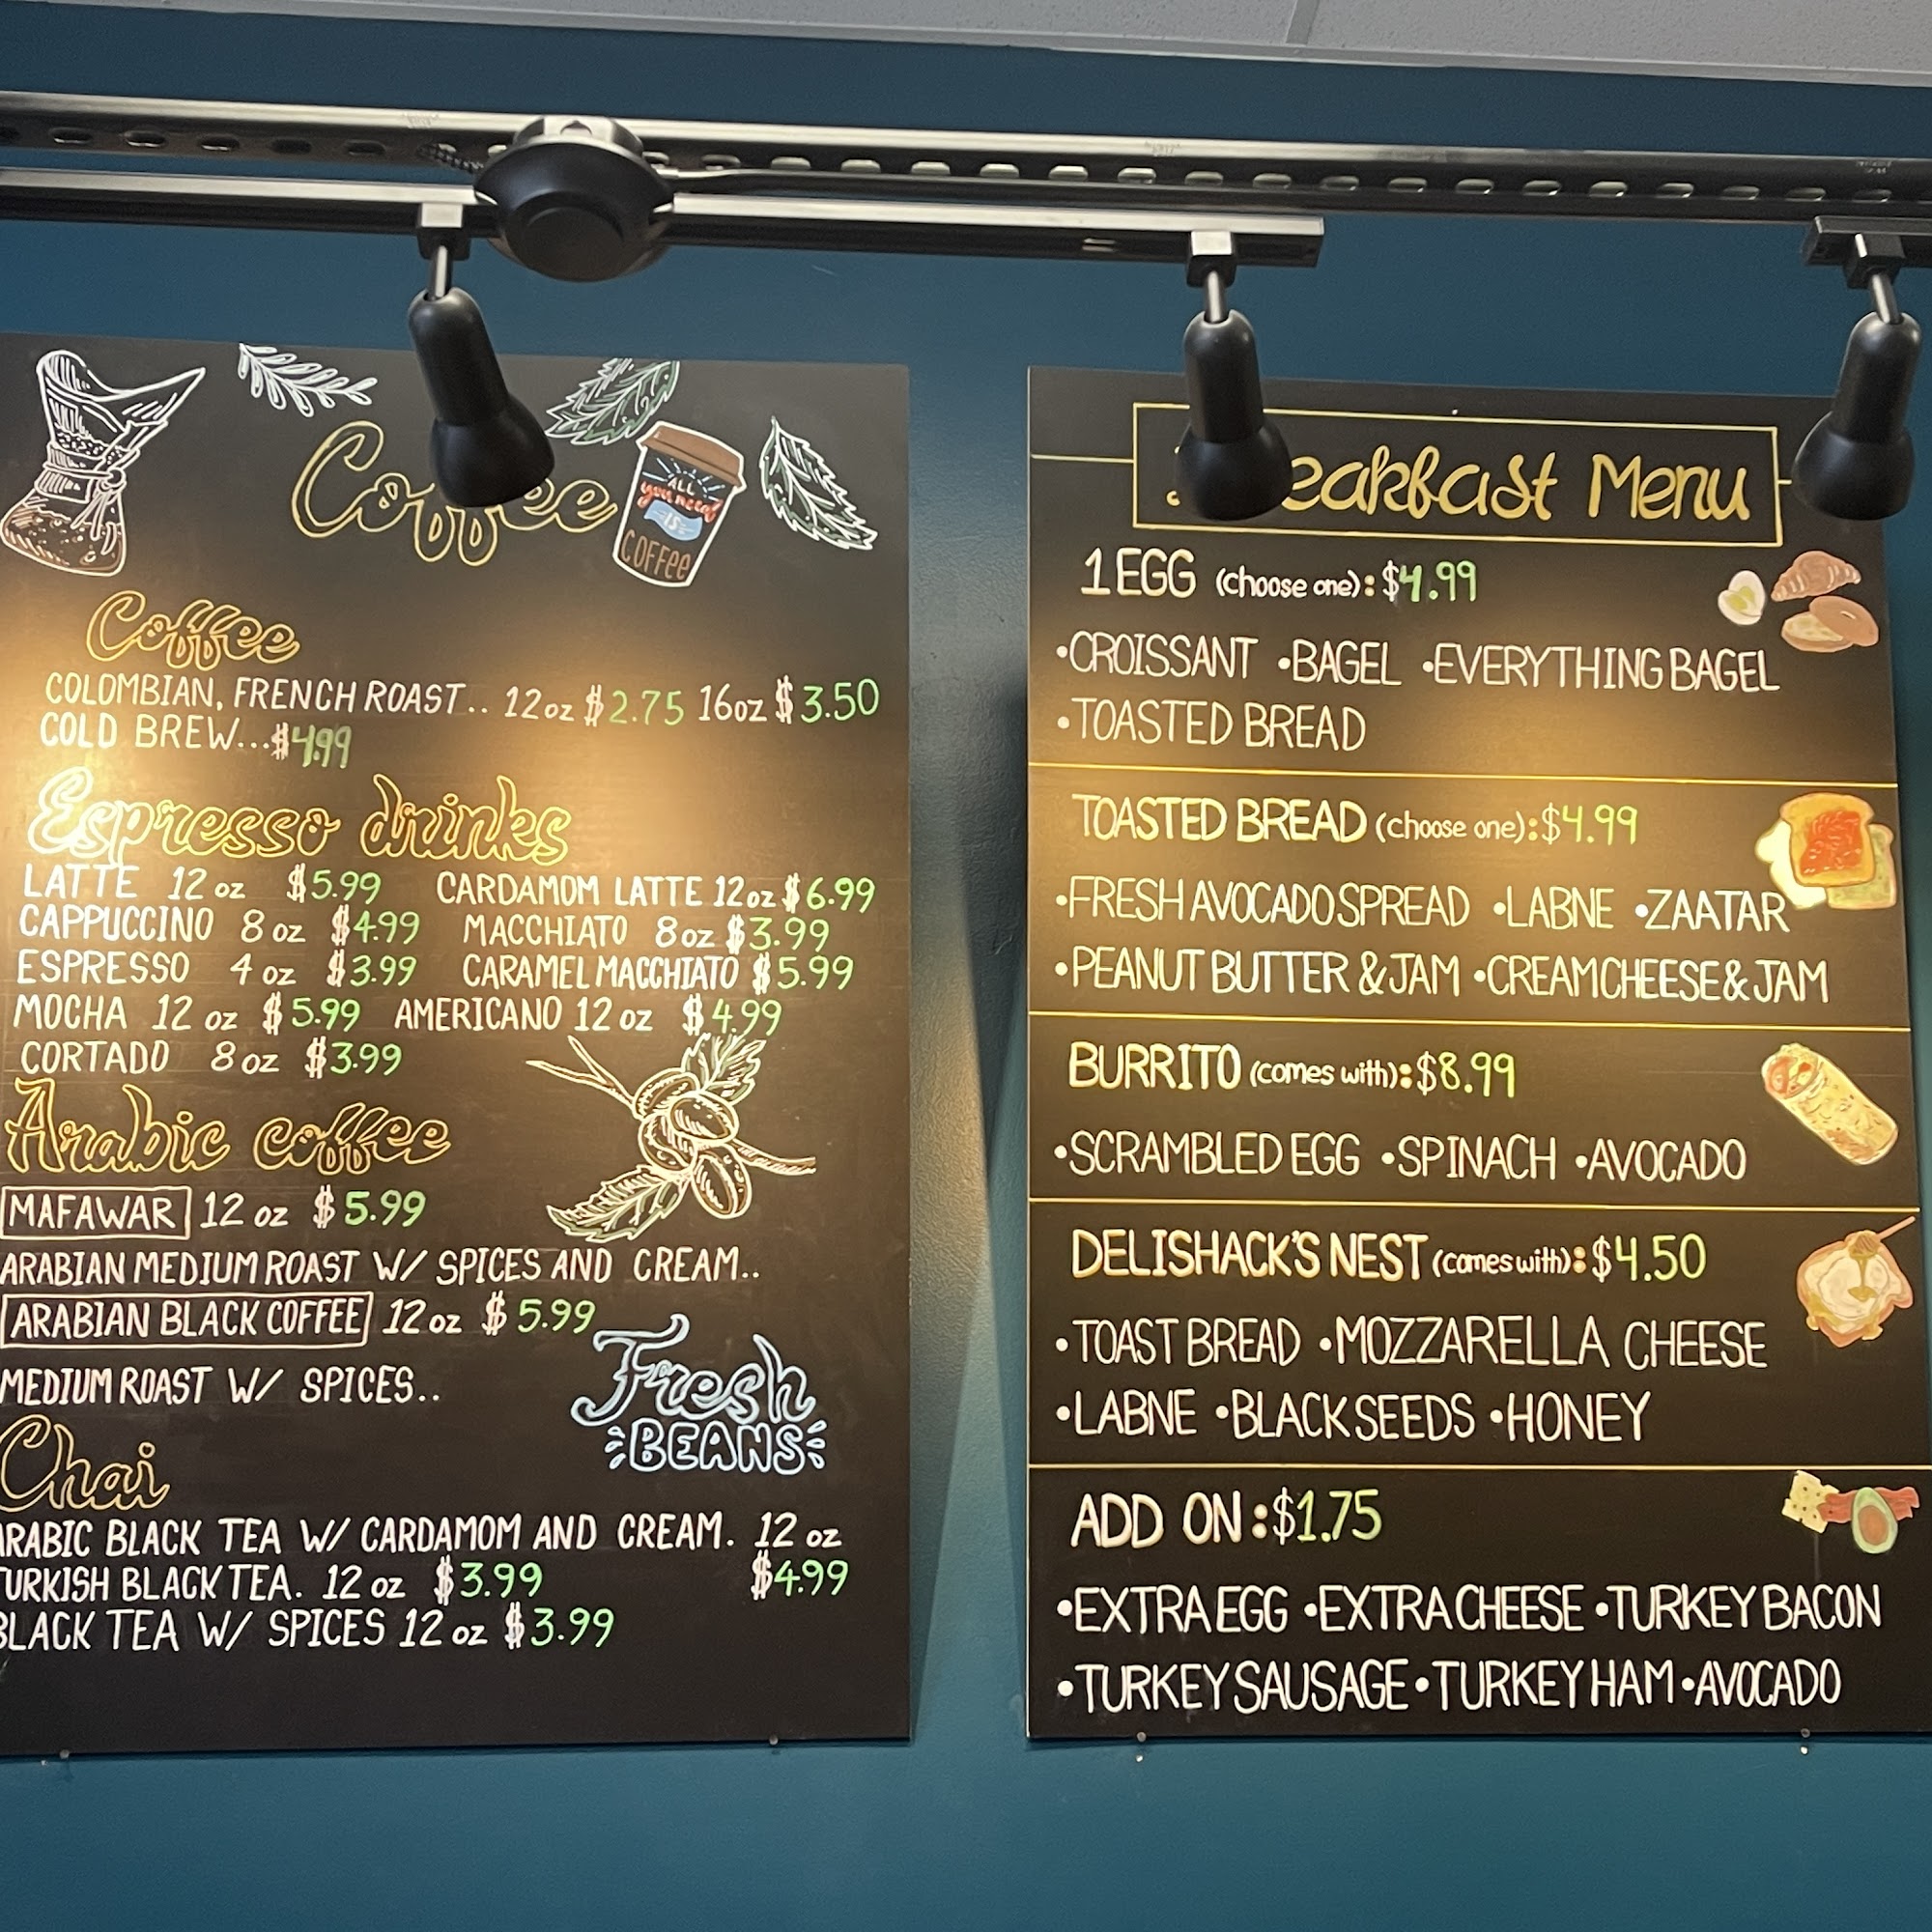 Coffee
ALL
you need
IS
COFFee
Coffee
COLOMBIAN, FRENCH ROAST.. 12oz $2.75 16oz $3.50
COLD BREW...$4.99
Espresso drinks
LATTE 12 oz $5.99 CARDAMOM LATTE 12oz $6.99
CAPPUCCINO 8 oz $4.99 MACCHIATO 8oz $3.99
ESPRESSO 4 oz $3.99 CARAMEL MACCHIATO $5.99
MOCHA 12 oz $5.99 AMERICANO 12 oz $4.99
CORTADO 8 oz $3.99
Arabic coffee
MAFAWAR 12 oz $5.99
ARABIAN MEDIUM ROAST W/ SPICES AND CREAM..
ARABIAN BLACK COFFEE 12 oz $5.99
MEDIUM ROAST W/ SPICES..
Fresh
BEANS
Chai
ARABIC BLACK TEA W/ CARDAMOM AND CREAM. 12 oz
TURKISH BLACK TEA. 12 oz $3.99 $4.99
BLACK TEA W/ SPICES 12 oz $3.99
Breakfast Menu
1 EGG (choose one): $4.99
•CROISSANT •BAGEL •EVERYTHING BAGEL
•TOASTED BREAD
TOASTED BREAD (choose one):$4.99
•FRESH AVOCADO SPREAD •LABNE •ZAATAR
•PEANUT BUTTER & JAM •CREAM CHEESE & JAM
BURRITO (comes with):$8.99
•SCRAMBLED EGG •SPINACH •AVOCADO
DELISHACK'S NEST (comes with):$4.50
•TOAST BREAD •MOZZARELLA CHEESE
•LABNE •BLACK SEEDS •HONEY
ADD ON:$1.75
•EXTRA EGG •EXTRA CHEESE •TURKEY BACON
•TURKEY SAUSAGE •TURKEY HAM •AVOCADO